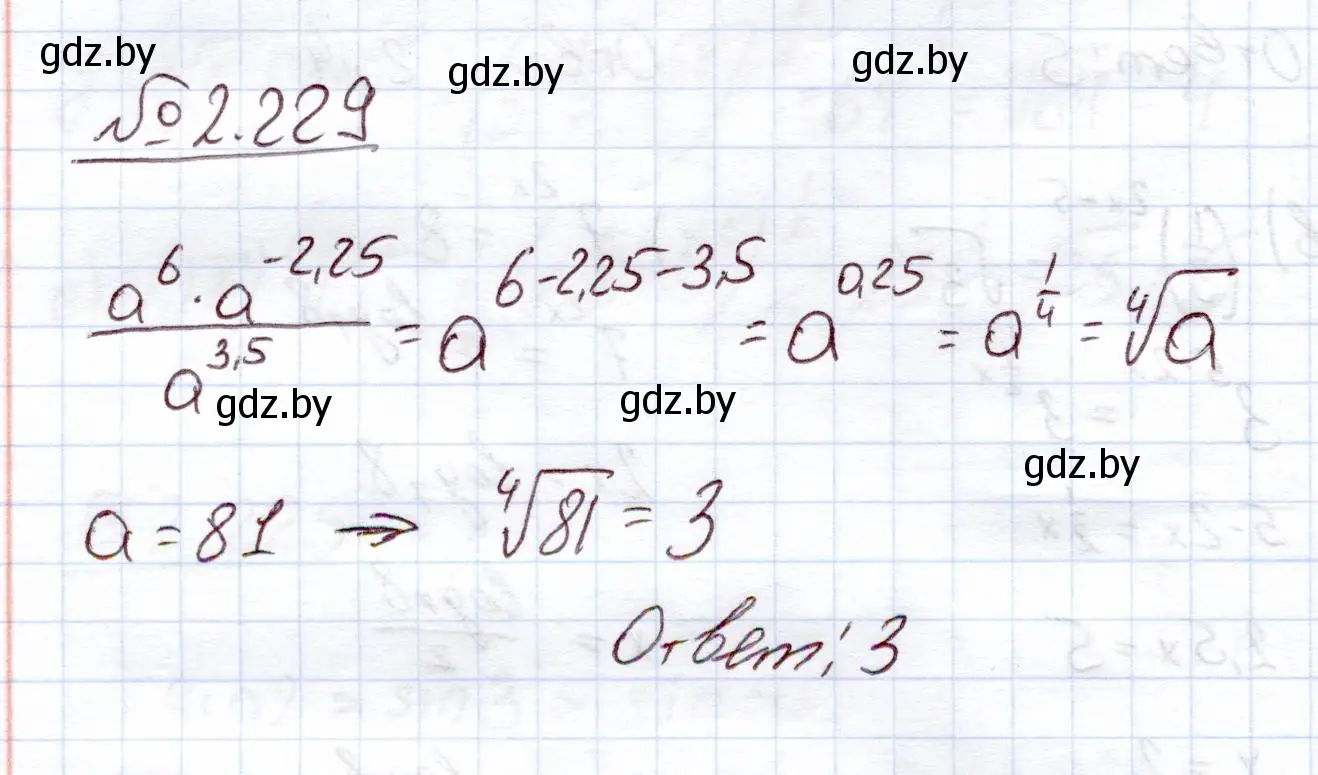 gdz.by gdz.by gdz.by
№ 2.229
a^6 · a^{-2,25} / a^{3,5} = a^{6-2,25-3,5} = a^{0,25} = a^{1/4} = ⁴√a
gdz.by gdz.by
gdz.by
a = 81 → ⁴√81 = 3
Ответ: 3